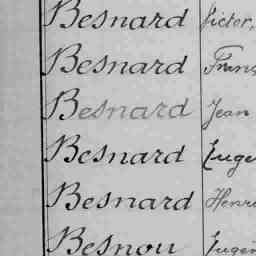 Besnard Victor,
Besnard Franç
Besnard Jean
Besnard Euge
Besnard Henri
Besnou Eugèn